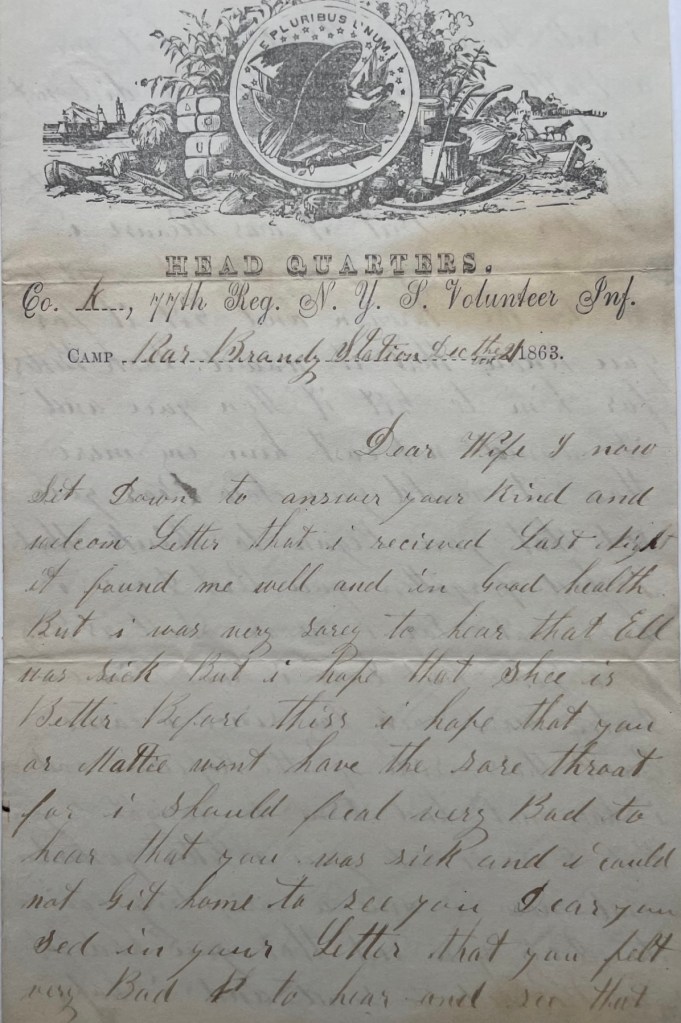 E PLURIBUS UNUM.
HEAD QUARTERS.
Co. K, 77th Reg. N. Y. S. Volunteer Inf.
CAMP Near Brandy Station Dec the 21 1863.
Dear Wife I now
Set Down to answer your kind and
welcom Letter that i recieved Last Night
it found me well and in Good health
But i was very sorey to hear that Ell
was sick But i hope that Shee is
Better Before thiss i hope that you
or Mattie wont have the sore throat
for i should feal very Bad to
hear that you was sick and i could
not Git home to see you Dear you
sed in your Letter that you felt
very Bad to hear and see that